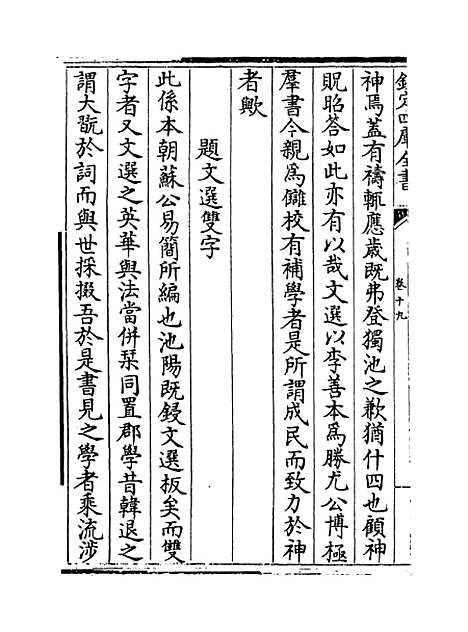 欽定四庫全書
卷十九
神焉蓋有禱輒應歲既弗登獨池之歉猶什四也顧神
貺昭答如此亦有以哉文選以李善本爲勝尤公博極
羣書今親爲讎校有補學者是所謂成民而致力於神
者歟
題文選雙字
此係本朝蘇公易簡所編也池陽既鋟文選板矣而雙
字者又文選之英華與法當併栞同置郡學昔韓退之
謂大翫於詞而與世採掇吾於是書見之學者乘流涉